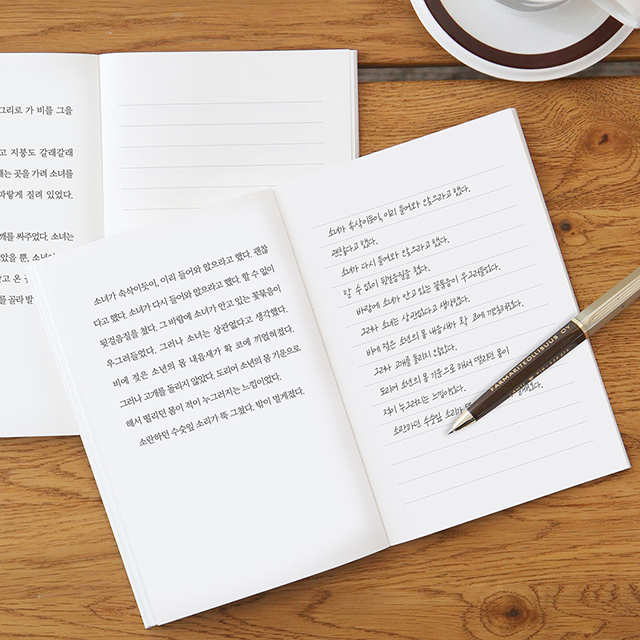 그리로 가 비를 그을
고 지붕도 갈래갈래
새는 곳을 가려 소녀를
파랗게 질려 있었다.
깨를 싸주었다. 소녀는
았을 뿐,
안고 온
를 골라 발
소녀가 속삭이듯이, 이리 들어와 앉으라고 했다. 괜찮
다고 했다. 소녀가 다시 들어와 앉으라고 했다. 할 수 없이
뒷걸음질을 쳤다. 그 바람에 소녀가 안고 있는 꽃묶음이
우그러들었다. 그러나 소녀는 상관없다고 생각했다.
비에 젖은 소년의 몸 내음새가 확 코에 끼얹혀졌다.
그러나 고개를 돌리지 않았다. 도리어 소년의 몸 기운으로
해서 떨리던 몸이 적이 누그러지는 느낌이었다.
소란하던 수숫잎 소리가 뚝 그쳤다. 밖이 멀게졌다.
소녀가 속삭이듯이, 이리 들어와 앉으라고 했다.
괜찮다고 했다.
소녀가 다시 들어와 앉으라고 했다.
할 수 없이 뒷걸음질을 쳤다.
바람에 소녀가 안고 있는 꽃묶음이 우그러들었다.
그러나 소녀는 상관없다고 생각했다.
비에 젖은 소년의 몸 내음새가 확 코에 끼얹혀졌다.
그러나 고개를 돌리지 않았다.
도리어 소년의 몸 기운으로 해서 떨리던 몸이
적이 누그러지는 느낌이었다.
소란하던 수숫잎 소리가